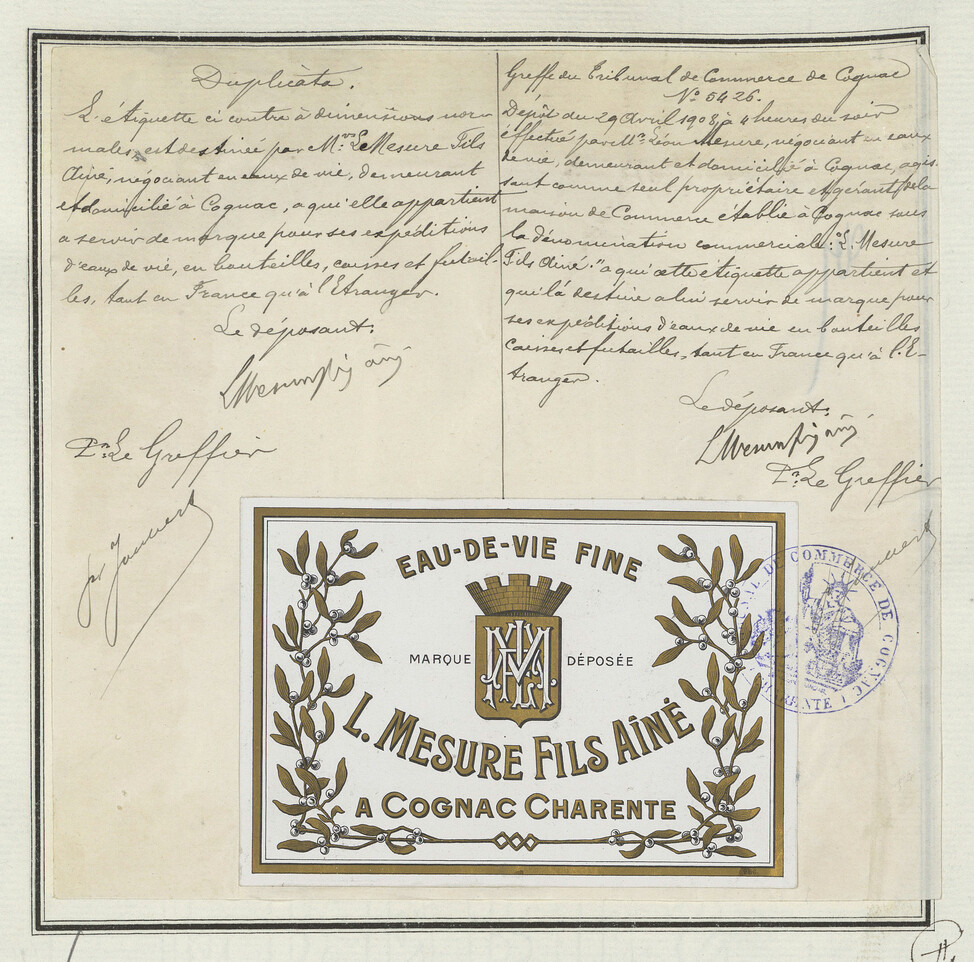 Duplicàta.
L'étiquette ci contre à dimensions nor-
males, est destinée par Mrs. L. Mesure Fils
Ainé, négociant en eaux de vie, demeurant
et domicilié à Cognac, a qu'elle appartient
a servir de marque pour ses expéditions
d'eaux de vie, en bouteilles, caisses et futail-
les, tant en France qu'à l'Etranger.
Le déposant:
L Mesure fils ainé
Pr. Le Greffier
Greffe du Tribunal de Commerce de Cognac
No 5426.
Dépôt du 29 Avril 1908, à 4 heures du soir
effectué par Mr. Léon Mesure, négociant en eaux
de vie, demeurant et domicilié à Cognac, agis
sant comme seul propriétaire et gérant de la
maison de Commerce établie à Cognac sous
la dénomination commerciale: "L. Mesure
Fils Ainé." a qui cette étiquette appartient et
qui la destine a lui servir de marque pour
ses expéditions d'eaux de vie en bouteilles
Caisses et futailles, tant en France qu'à l'E-
tranger.
Le déposant:
L Mesure fils ainé
Pr. Le Greffier
EAU-DE-VIE FINE
MARQUE DÉPOSÉE
L. MESURE FILS AÎNÉ
A COGNAC CHARENTE
DE COMMERCE DE COGNAC